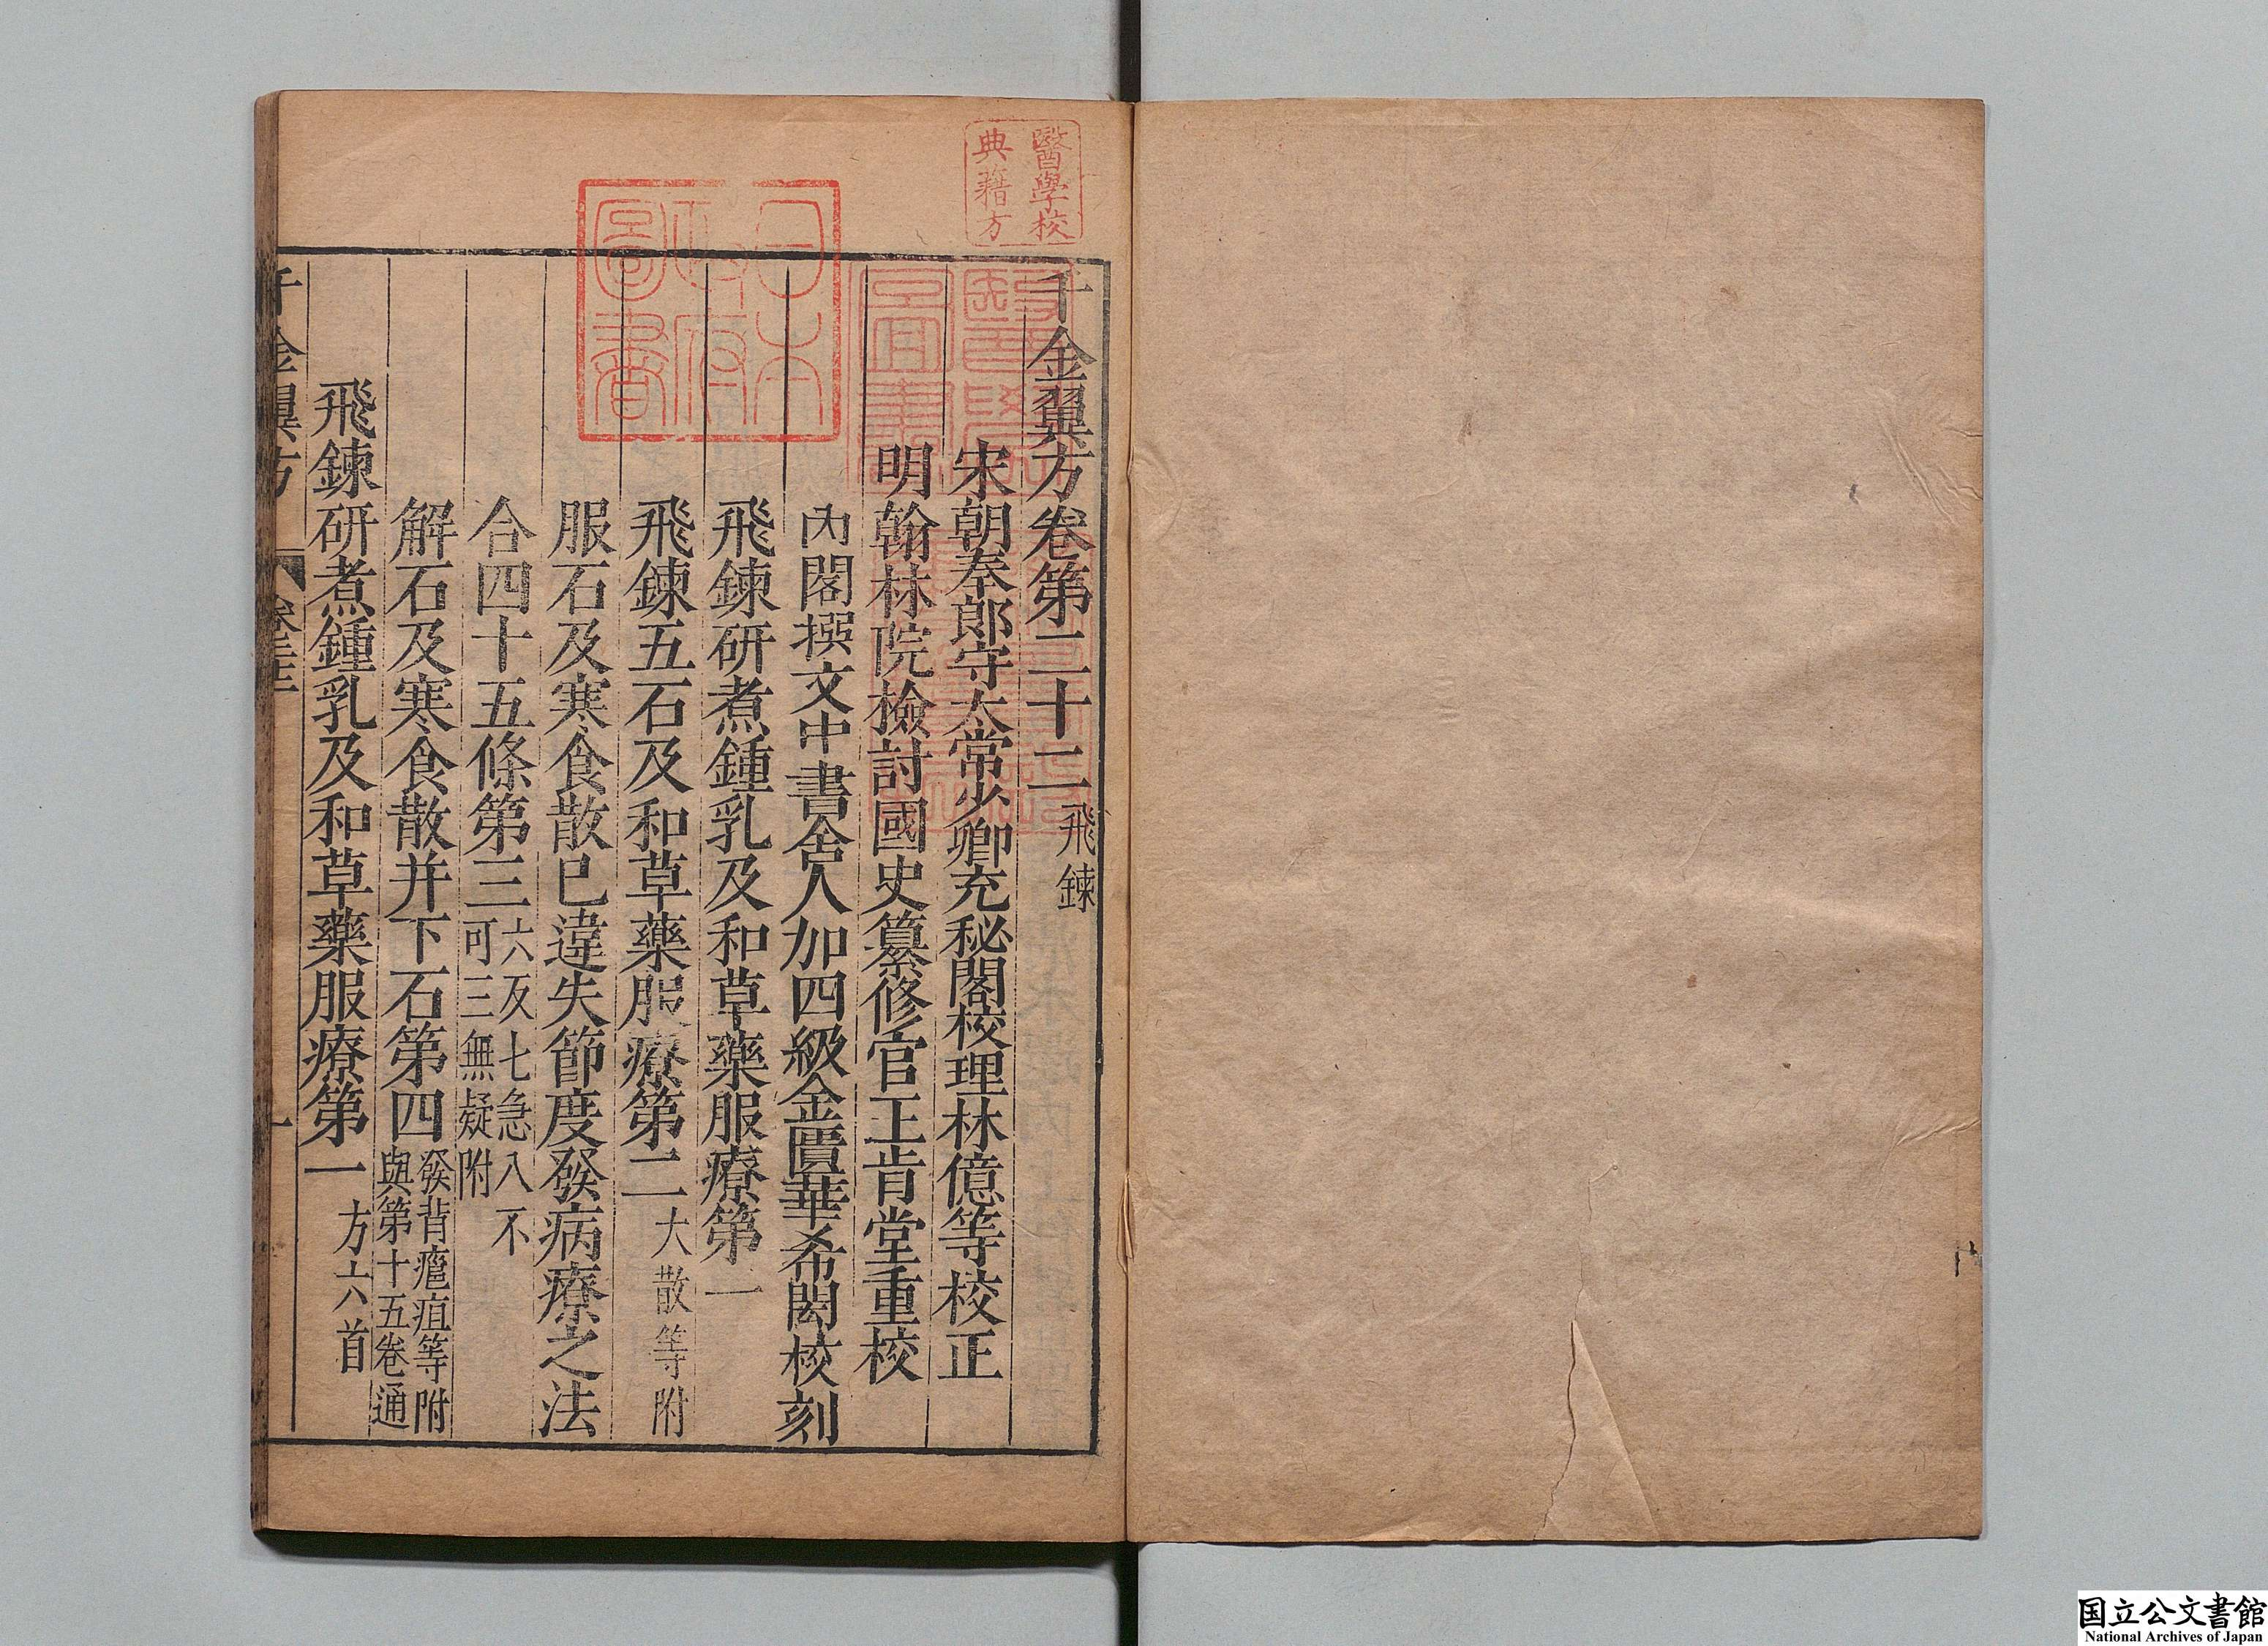 千金翼方卷第二十二飛鍊
宋朝奉郎守太常少卿充秘閣校理林億等校正
明翰林院檢討國史纂修官王肯堂重校
內閣撰文中書舍人加四級金匱華希閎校刻
飛鍊研煮鍾乳及和草藥服療第一
飛鍊五石及和草藥服療第二大散等附
服石及寒食散已違失節度發病療之法
合四十五條第三六反七急八不
可三無疑附
解石及寒食散并下石第四發背癰疽等附
與第十五卷通
飛鍊研煮鍾乳及和草藥服療第一方六首
千金翼方
卷二十二
一
醫學校
典籍方
日本
政府
圖書
国立公文書館
National Archives of Japan